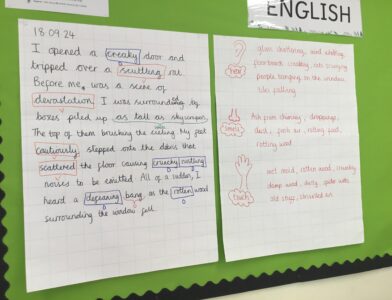 ENGLISH
18.09.24
I opened a creaky door and
tripped over a scuttling rat.
Before me, was a scene of
devastation. I was surrounded by
boxes piled up as tall as skyscrapers.
The top of them brushing the ceiling. My feet
cautiously stepped onto the debris that
scattered the floor causing crunchy rustling
noises to be emitted. All of a sudden, I
heard a deafening bang as the rotten wood
surrounding the window fell.
hear
glass shattering, wind whistling,
floorboards creaking, rats scurrying
people banging on the window
tiles falling
smell
ash from chimney, droppings,
dust, fresh air, rotting food,
rotting wood
touch
wet mould, rotten wood, crunchy
damp wood, dusty, spider webs
old